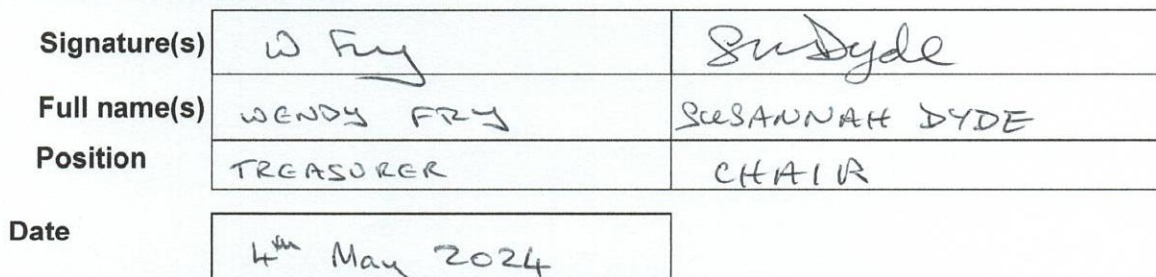 Signature(s) W Fry Su Dyde
Full name(s) WENDY FRY SUSANNAH DYDE
Position TREASURER CHAIR
Date 4th May 2024